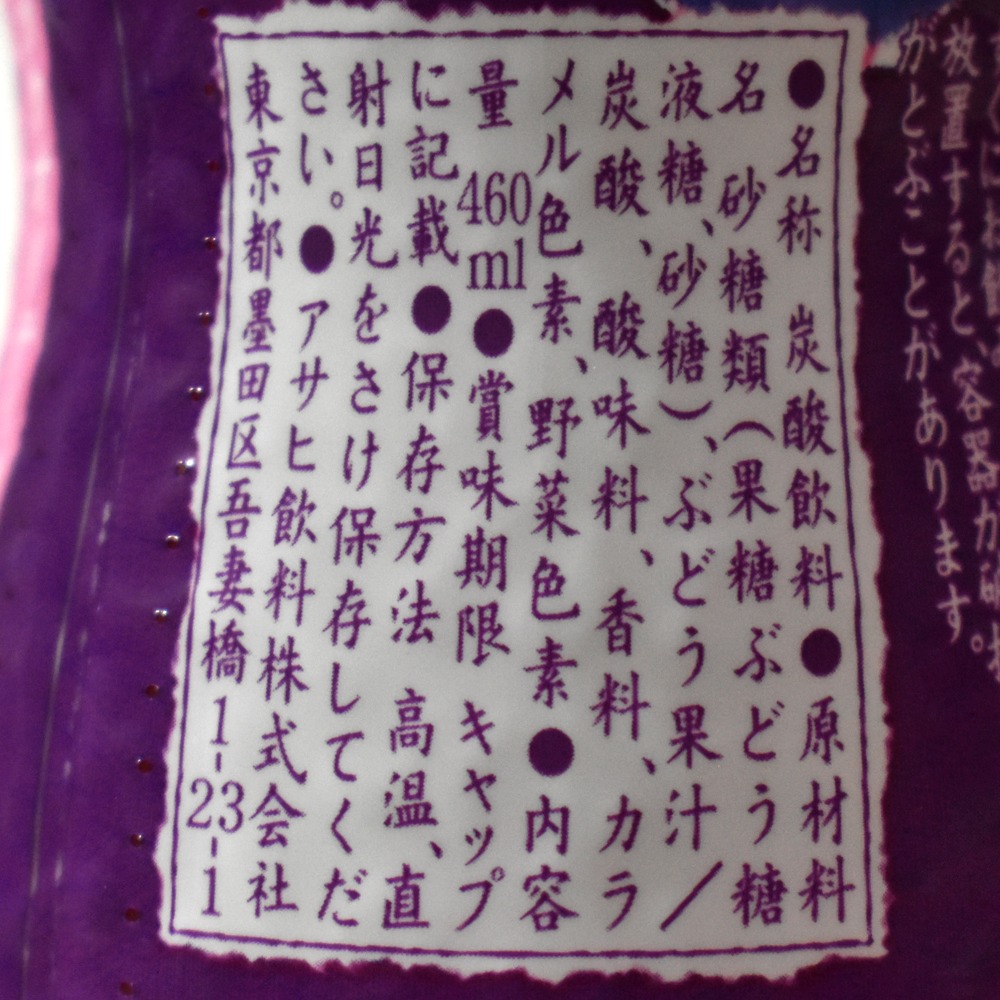 放置すると、容器が破
がとぶことがあります。
●名称 炭酸飲料●原材料
名 砂糖類(果糖ぶどう糖
液糖、砂糖)、ぶどう果汁/
炭酸、酸味料、香料、カラ
メル色素、野菜色素●内容
量 460ml●賞味期限 キャップ
に記載●保存方法 高温、直
射日光をさけ保存してくだ
さい。●アサヒ飲料株式会社
東京都墨田区吾妻橋1-23-1